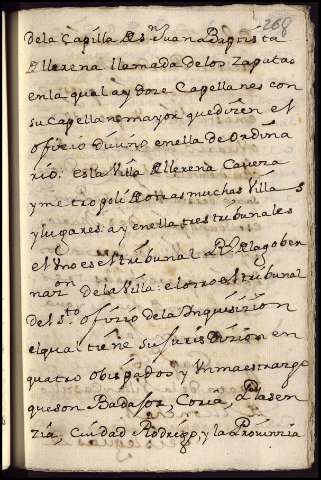 268
dela Capilla de Sn Juan Baptista
de llerena llamada delos Zapatas
en la qual ay doze Capellanes con
su Capellan mayor que dizen el
ofizio diuino en ella de Ordina
rio: es la Villa de llerena Caueza
y metropoli de otras muchas Villas
y lugares: ay en ella tres tribunales
el Vno es el tribunal de la gober
nazon de la Villa: el otro el tribunal
del sto ofizio dela Inquisizion
el qual tiene su Jurisdizion en
quatro obispados y Vn maestrazgo
que son Badajoz, Coria, Plasen
zia, Ciudad Rodrigo, y la Prouinzia